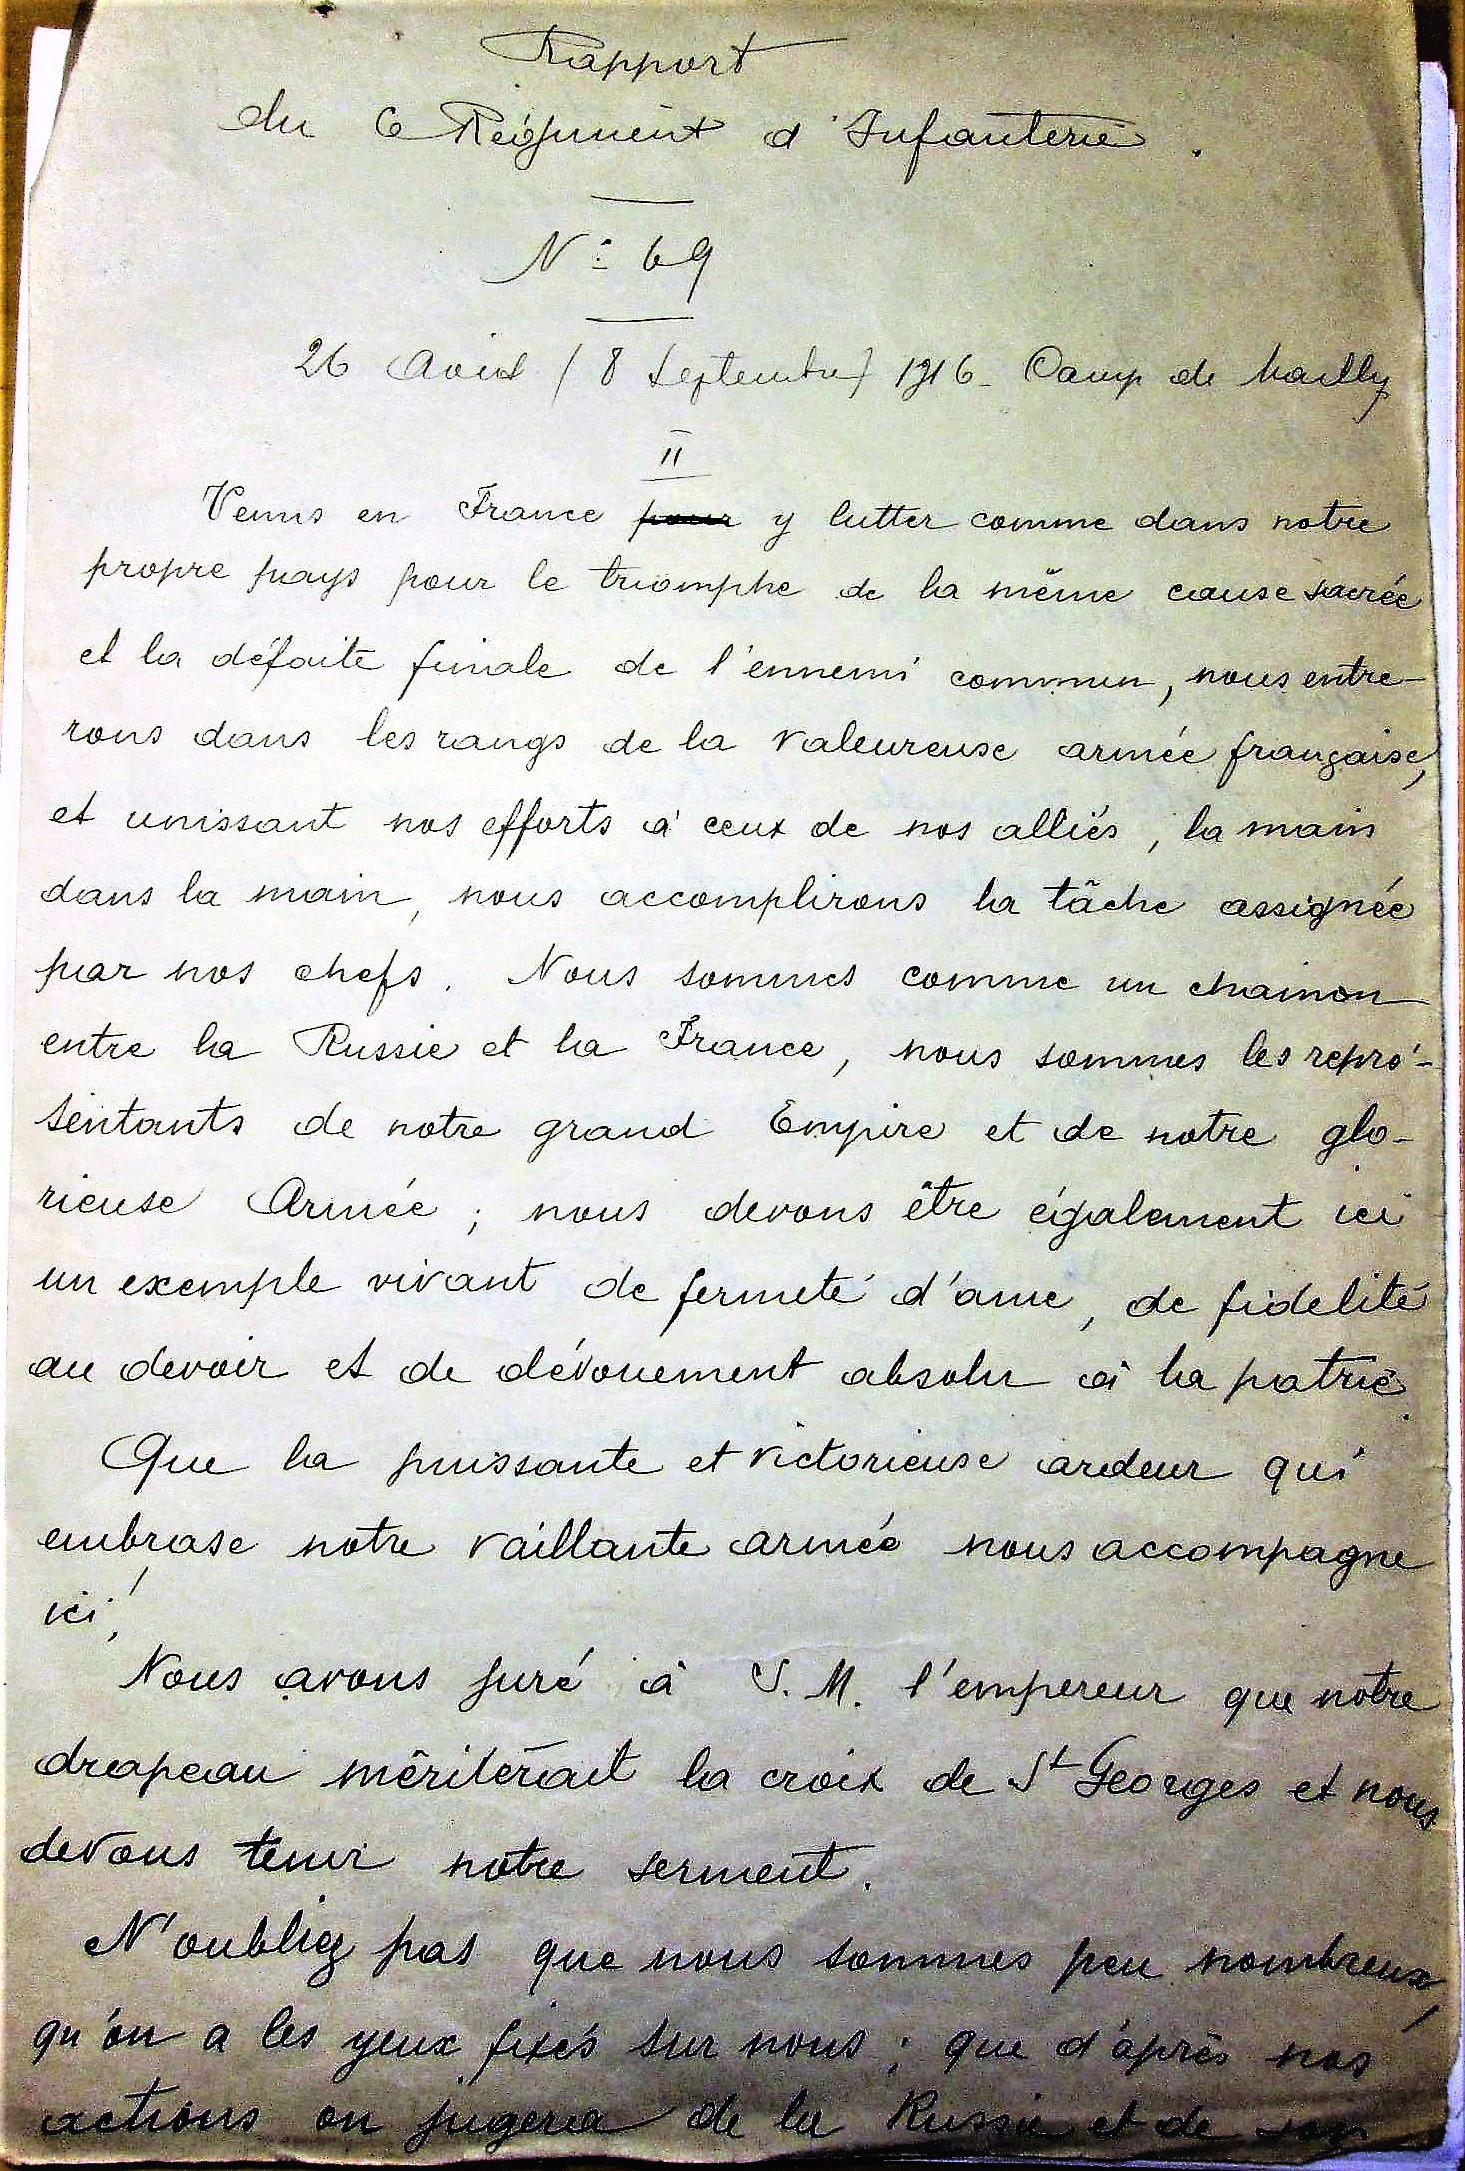 Rapport
du 6 Régiment d'Infanterie.
N° 69
26 Avril (8 Septembre) 1916 - Camp de Mailly
II
Venus en France pour y lutter comme dans notre
propre pays pour le triomphe de la même cause sacrée
et la défaite finale de l'ennemi commun, nous entre-
rons dans les rangs de la valeureuse armée française,
et unissant nos efforts à ceux de nos alliés, la main
dans la main, nous accomplirons la tâche assignée
par nos chefs. Nous sommes comme un chainon
entre la Russie et la France, nous sommes les repré-
sentants de notre grand Empire et de notre glo-
rieuse Armée ; nous devons être également ici
un exemple vivant de fermeté d'ame, de fidelité
au devoir et de dévouement absolu à la patrie.
Que la puissante et victorieuse ardeur qui
embrase notre vaillante armée nous accompagne
ici !
Nous avons juré à S. M. l'empereur que notre
drapeau mériterait la croix de St Georges et nous
devons tenir notre serment.
N'oubliez pas que nous sommes peu nombreux,
qu'on a les yeux fixés sur nous ; que d'après nos
actions on jugera de la Russie et de son